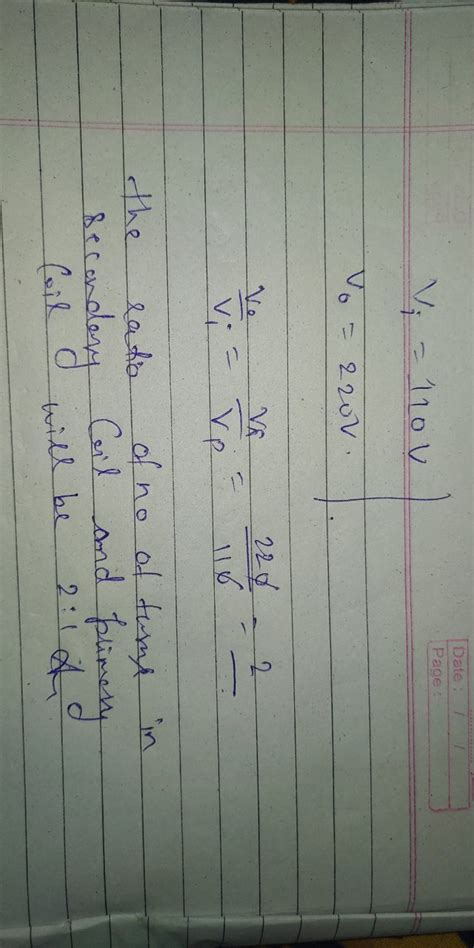 Date : / /
Page :
Vi = 110V
Vo = 220V.
Vo/Vi = Vs/Vp = 220/110 = 2
the ratio of no of turns in
secondary coil and primary
coil will be 2:1